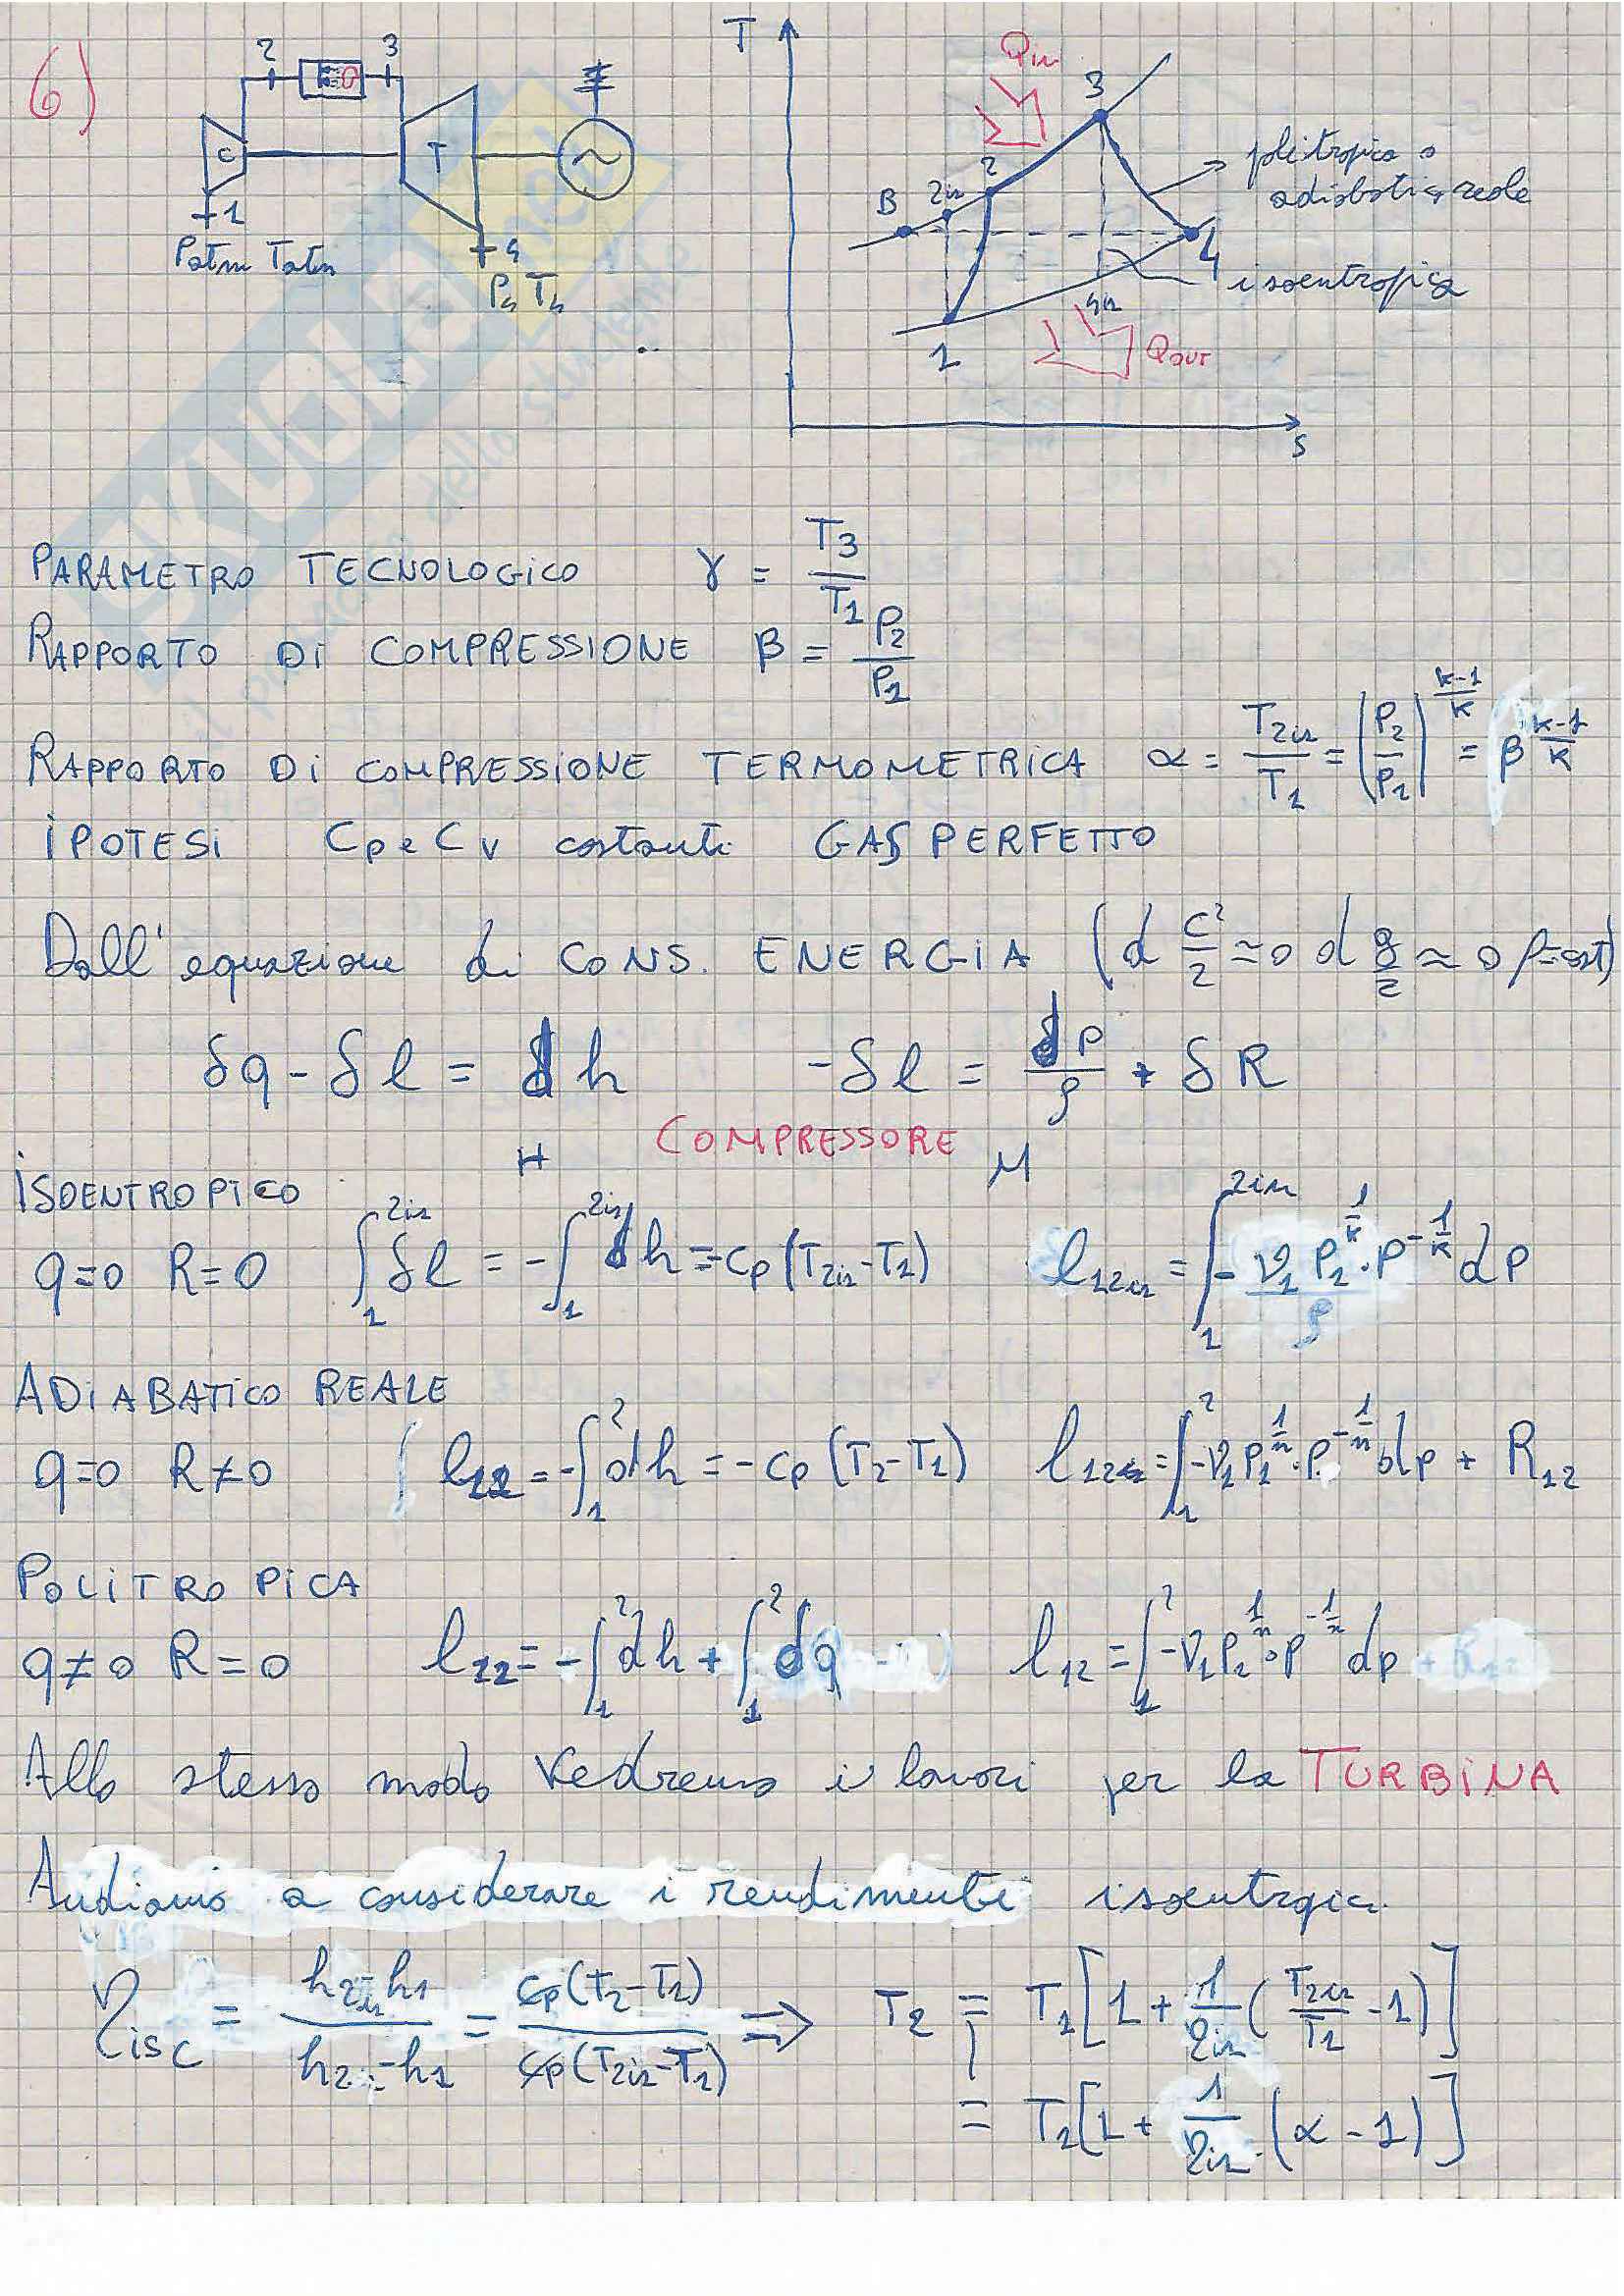 6)
2 3
C T ~
1
Patm Tatm
4
P4 T4
T
Qin
3
2
2is
B
politropica o
adiabatica reale
4
isoentropica
4is
1
Qout
s
PARAMETRO TECNOLOGICO γ = T3/T1
RAPPORTO Di COMPRESSIONE β = P2/P1
RAPPORTO Di COMPRESSIONE TERMOMETRICA α = T2is/T1 = (P2/P1)^(k-1/k) = β^(k-1/k)
IPOTESI Cp e Cv costanti GAS PERFETTO
Dall'equazione di CONS. ENERGIA (d c²/2 ≈ 0 d g/z ≈ 0 ρ=cost)
δq - δl = dh -δl = dp/ρ + δR
COMPRESSORE
H M
ISOENTROPICO
q=0 R=0 ∫₁^2is δl = -∫₁^2is dh = -cp (T2is-T1) l12is = ∫₁^2is - v1 P1^(1/k) · P^(-1/k) dP
ρ
ADIABATICO REALE
q=0 R≠0 l12 = -∫₁² dh = -cp (T2-T1) l12 = ∫₁² -v1 P1^(1/n) · P^(-1/n) dp + R12
POLITROPICA
q≠0 R=0 l12 = -∫₁² dh + ∫₁² dq l12 = ∫₁² -v1 P1^(1/n) · P^(-1/n) dp
Allo stesso modo vedremo i lavori per la TURBINA
Andiamo a considerare i rendimenti isoentropici
ηisC = h2is-h1/h2-h1 = cp(T2-T1)/cp(T2is-T1) ⇒ T2 = T1[1 + 1/ηis (T2is/T1 - 1)]
= T1[1 + 1/ηis · (α - 1)]